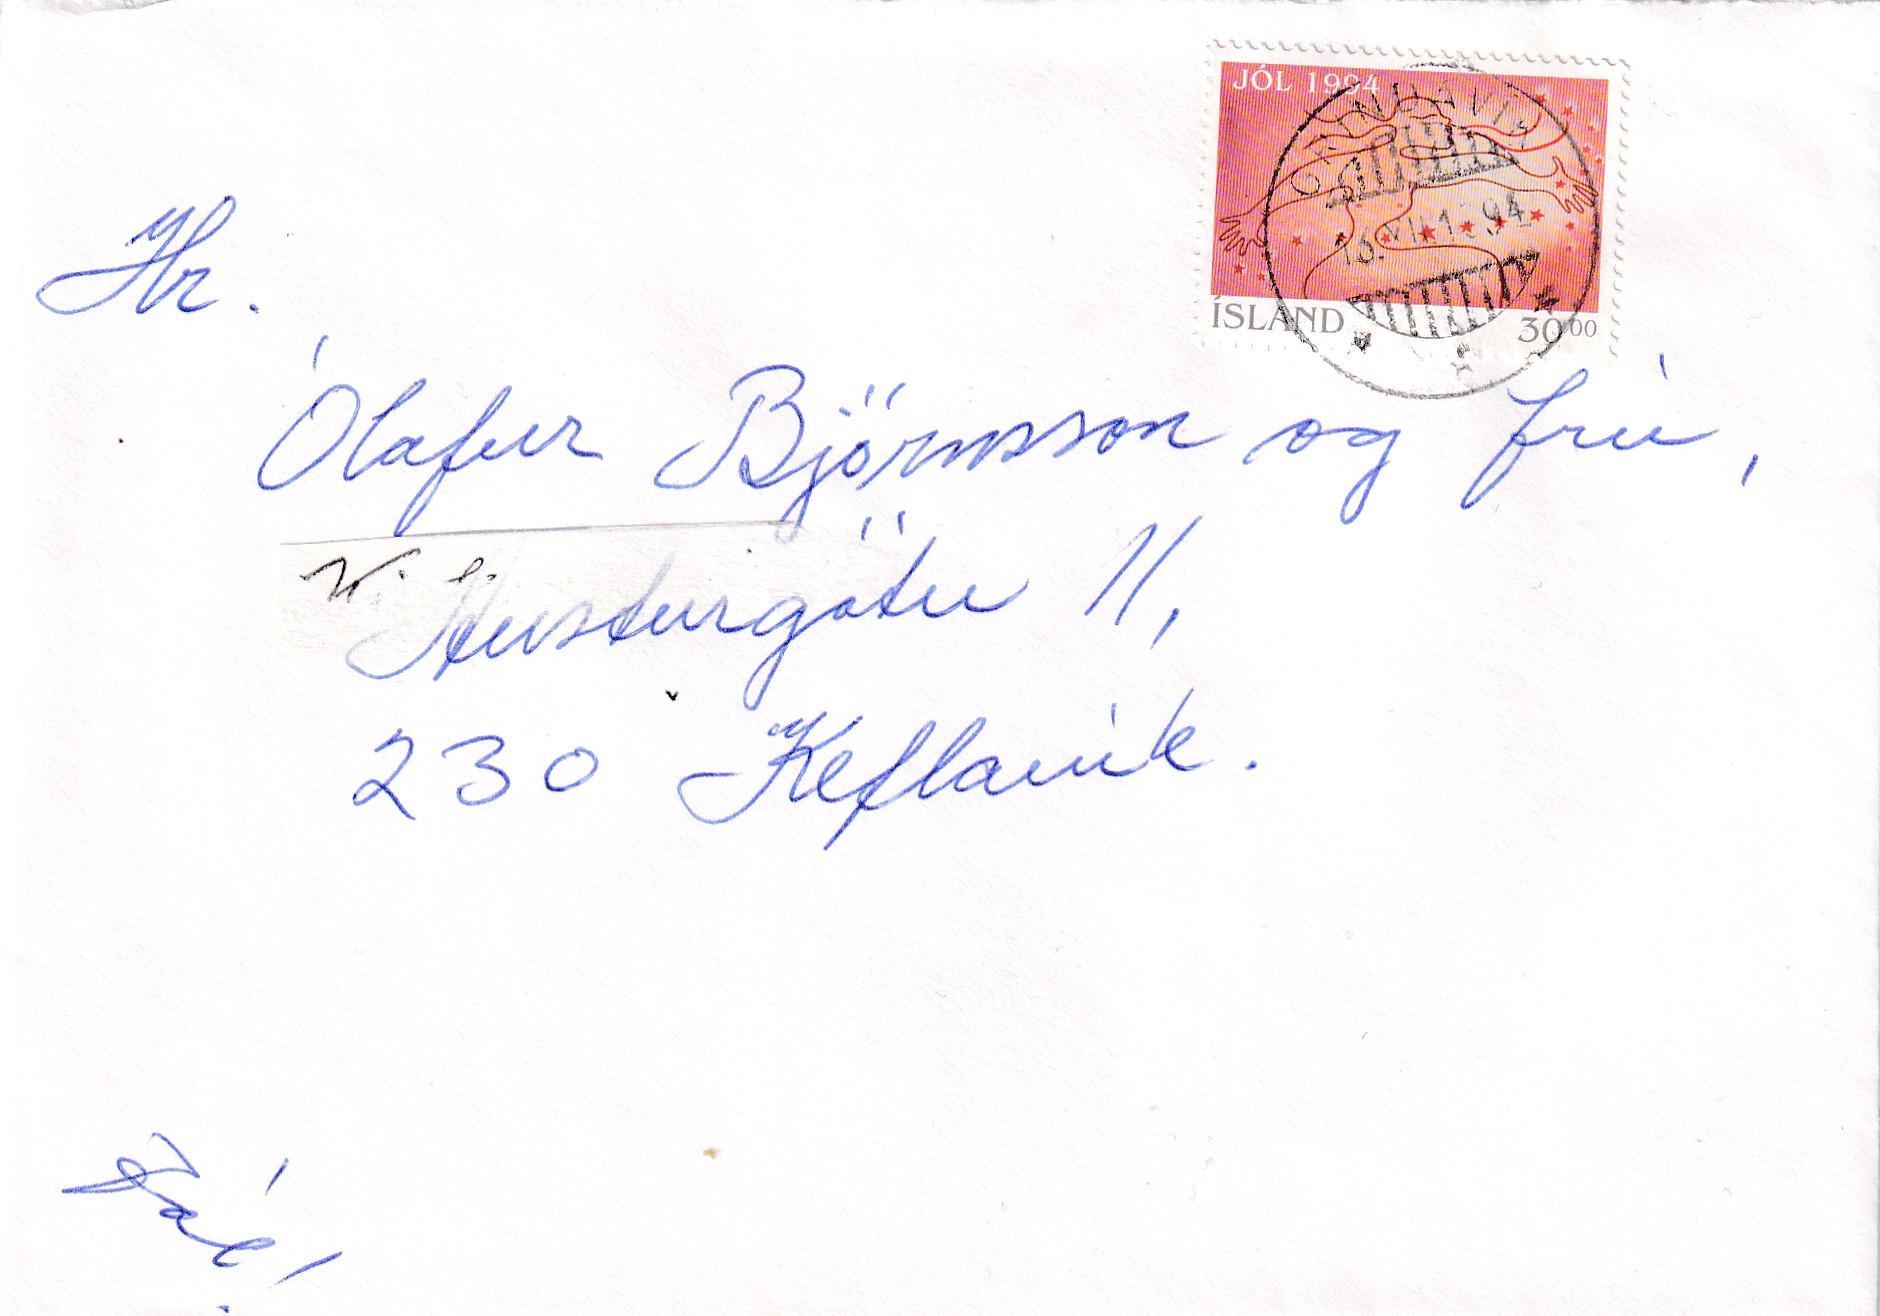 JÓL 1994
ÍSLAND 30⁰⁰
Hr.
Ólafur Björnsson og frú,
Austurgötu 11,
230 Keflavík.